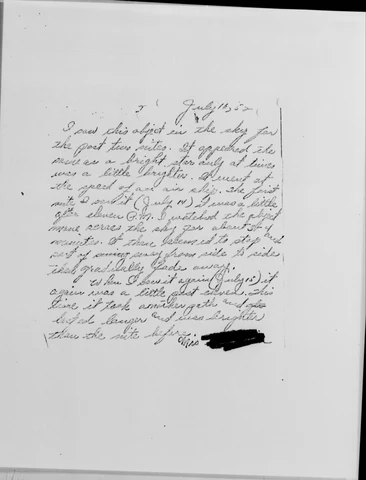 July 16, 52
I saw this object in the sky for
the past two nites. It appeared the
same as a bright star only at times
was a little brighter. It went at
the speed of an air ship. The first
nite I saw it (July 14) I was a little
after eleven P.M. I watched the object
move across the sky for about 3 or 4
minutes. It then seemed to stop and
sort of swing away from side to side
then gradually fade away.
When I saw it again (July 15) it
again was a little past eleven. This
time it took another path and
lasted longer and was brighter
than the nite before.
Mrs